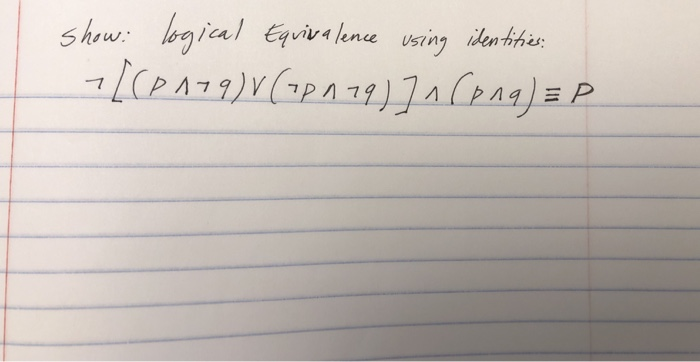 show: logical Equivalence using identities:
¬[(P∧¬q)∨(¬P∧¬q)]∧(P∧q)≡P